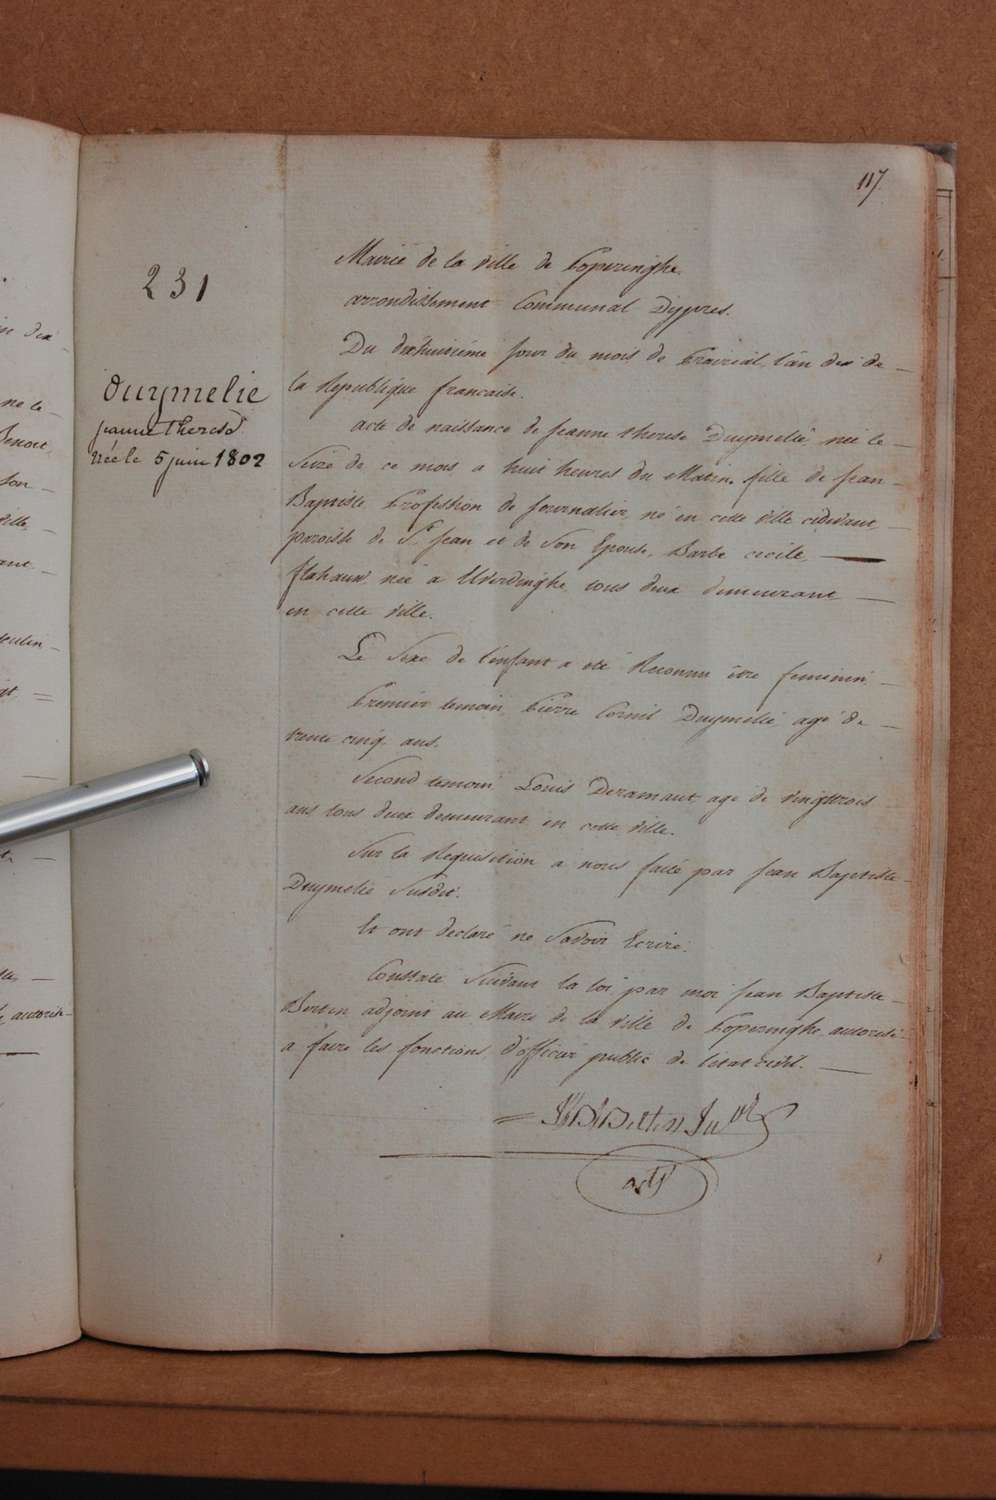 117.
231
Duÿmelie
jeanne Therese
Née le 5 juin 1802
Mairie de la Ville de Poperinghe.
arrondissement Communal Dypres.
Du dixhuitieme jour du mois de Prairial, l'an dix de
la Republique francaise.
acte de naissance de Jeanne therese Duymelie née le
Seize de ce mois a huit heures du Matin, fille de Jean
Baptiste Profession de Journalier, né en cette Ville cidevant
paroisse de St. Jean et de Son Epouse, Barbe cecile
née a tous deux demeurant
en cette Ville.
Le Sexe de l'enfant a été Reconnu être feminin
Premier temoin, Pierre Cornil Duymelie agé de
trente cinq ans.
Second temoin Louis Deramaut agé de vingttrois
ans tous deux demeurant en cette Ville.
Sur la Requisition a nous faite par Jean Baptiste
Duymelie Susdit.
Et ont declaré ne Savoir Ecrire.
Constaté Suivant la loi par moi Jean Baptiste
Berten adjoint au Maire de la Ville de Poperinghe autorisé
a faire les fonctions d'officier public de l'état civil.
Berten